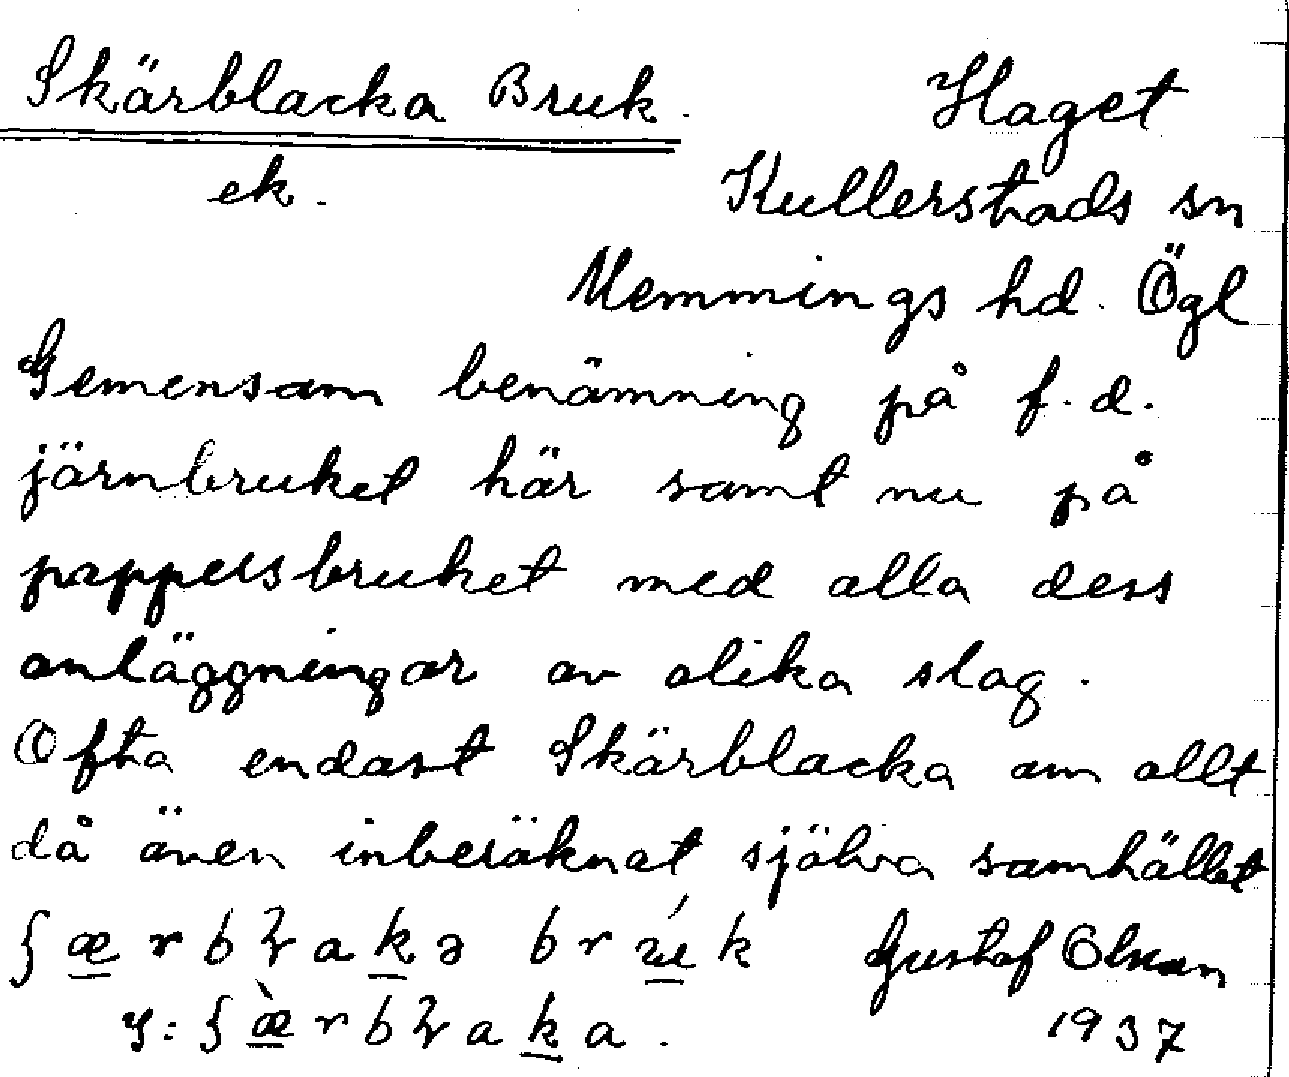 Skärblacka Bruk.
Haget
ek.
Kullerstads sn
Memmings hd. Ögl
Gemensam benämning på f.d.
järnbruket här samt nu på
pappersbruket med alla dess
anläggningar av olika slag.
Ofta endast Skärblacka om allt
då även inberäknat själva samhället
Gustaf Olsson
1937